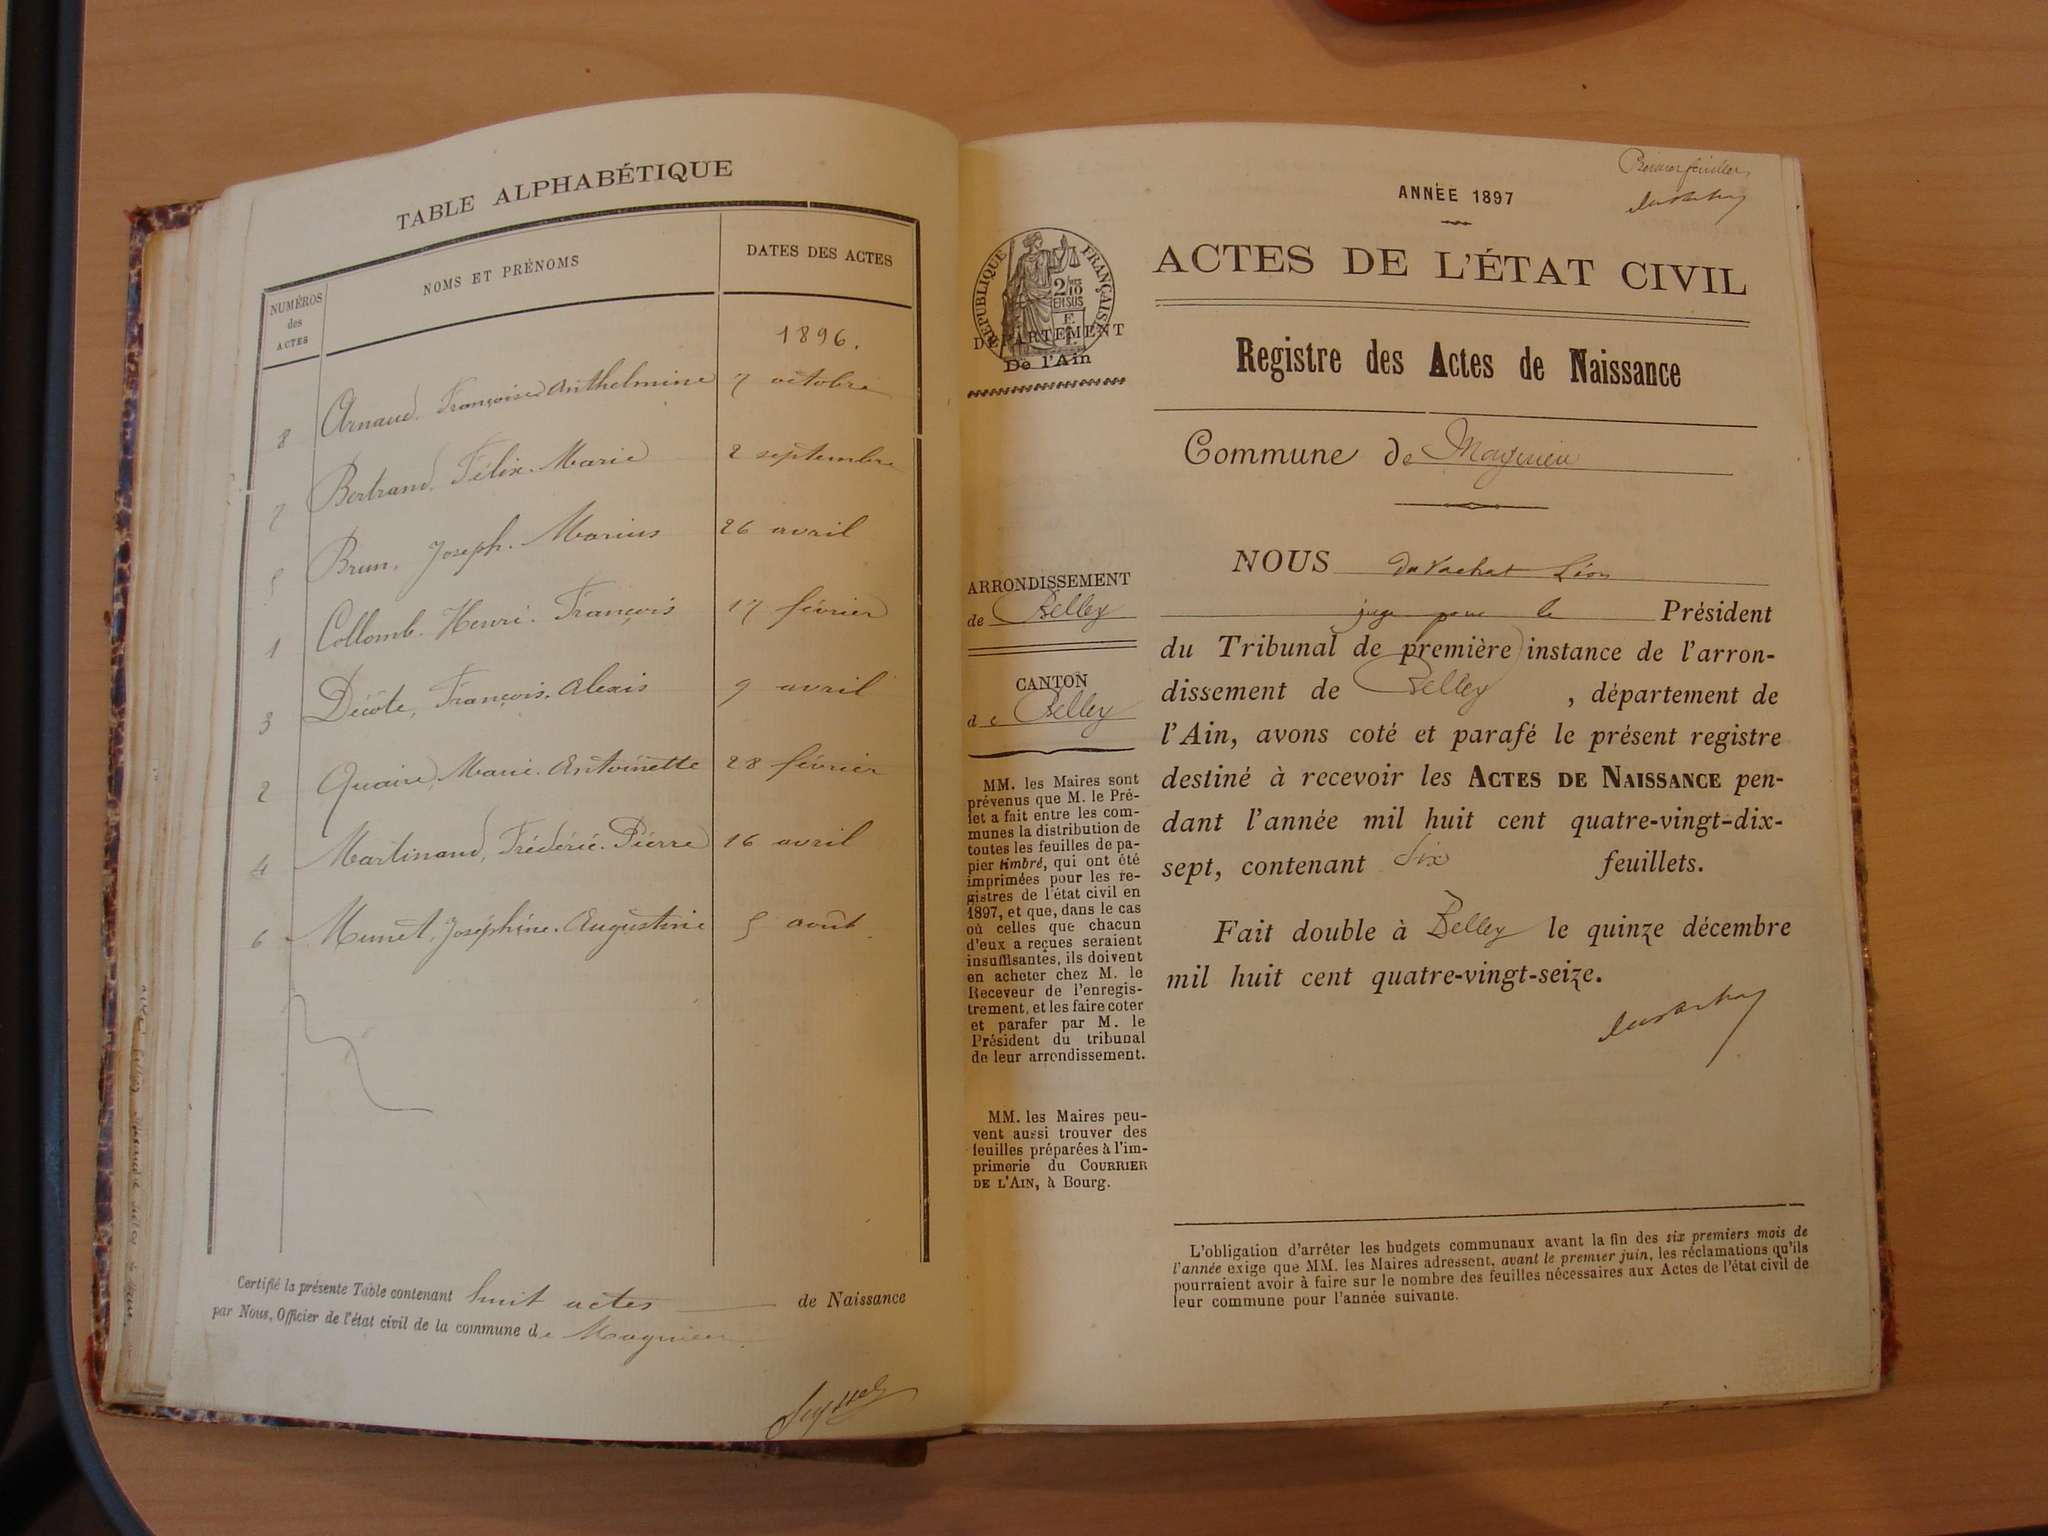 TABLE ALPHABÉTIQUE
NUMÉROS des ACTES
NOMS ET PRÉNOMS
DATES DES ACTES
1896.
8 Arnaud. Françoise Anthelmine 7 octobre
7 Bertrand. Félix. Marie 2 septembre
5 Brun. Joseph. Marius 26 avril
1 Collomb. Henri. François 17 février
3 Décote, François. Alexis 9 avril
2 Quaire, Marie. Antoinette 28 février
4 Martinand, Frédéric. Pierre 16 avril
6 Munet, Joséphine. Augustine 5 août
Certifié la présente Table contenant huit actes de Naissance
par Nous, Officier de l'état civil de la commune de Magnieu
Premier feuillet
ANNÉE 1897
RÉPUBLIQUE FRANÇAISE
2/10
EN SUS
DÉPARTEMENT
De l'Ain
ACTES DE L'ÉTAT CIVIL
Registre des Actes de Naissance
Commune de Magnieu
ARRONDISSEMENT
de Belley
CANTON
de Belley
MM. les Maires sont
prévenus que M. le Pré-
fet a fait entre les com-
munes la distribution de
toutes les feuilles de pa-
pier timbré, qui ont été
imprimées pour les re-
gistres de l'état civil en
1897, et que, dans le cas
où celles que chacun
d'eux a reçues seraient
insuffisantes, ils doivent
en acheter chez M. le
Receveur de l'enregis-
trement, et les faire coter
et parafer par M. le
Président du tribunal
de leur arrondissement.
MM. les Maires peu-
vent aussi trouver des
feuilles préparées à l'im-
primerie du COURRIER
DE L'AIN, à Bourg.
NOUS Duvachat Léon
juge pour le Président
du Tribunal de première instance de l'arron-
dissement de Belley, département de
l'Ain, avons coté et parafé le présent registre
destiné à recevoir les ACTES DE NAISSANCE pen-
dant l'année mil huit cent quatre-vingt-dix-
sept, contenant Six feuillets.
Fait double à Belley le quinze décembre
mil huit cent quatre-vingt-seize.
L'obligation d'arrêter les budgets communaux avant la fin des six premiers mois de
l'année exige que MM. les Maires adressent, avant le premier juin, les réclamations qu'ils
pourraient avoir à faire sur le nombre des feuilles nécessaires aux Actes de l'état civil de
leur commune pour l'année suivante.